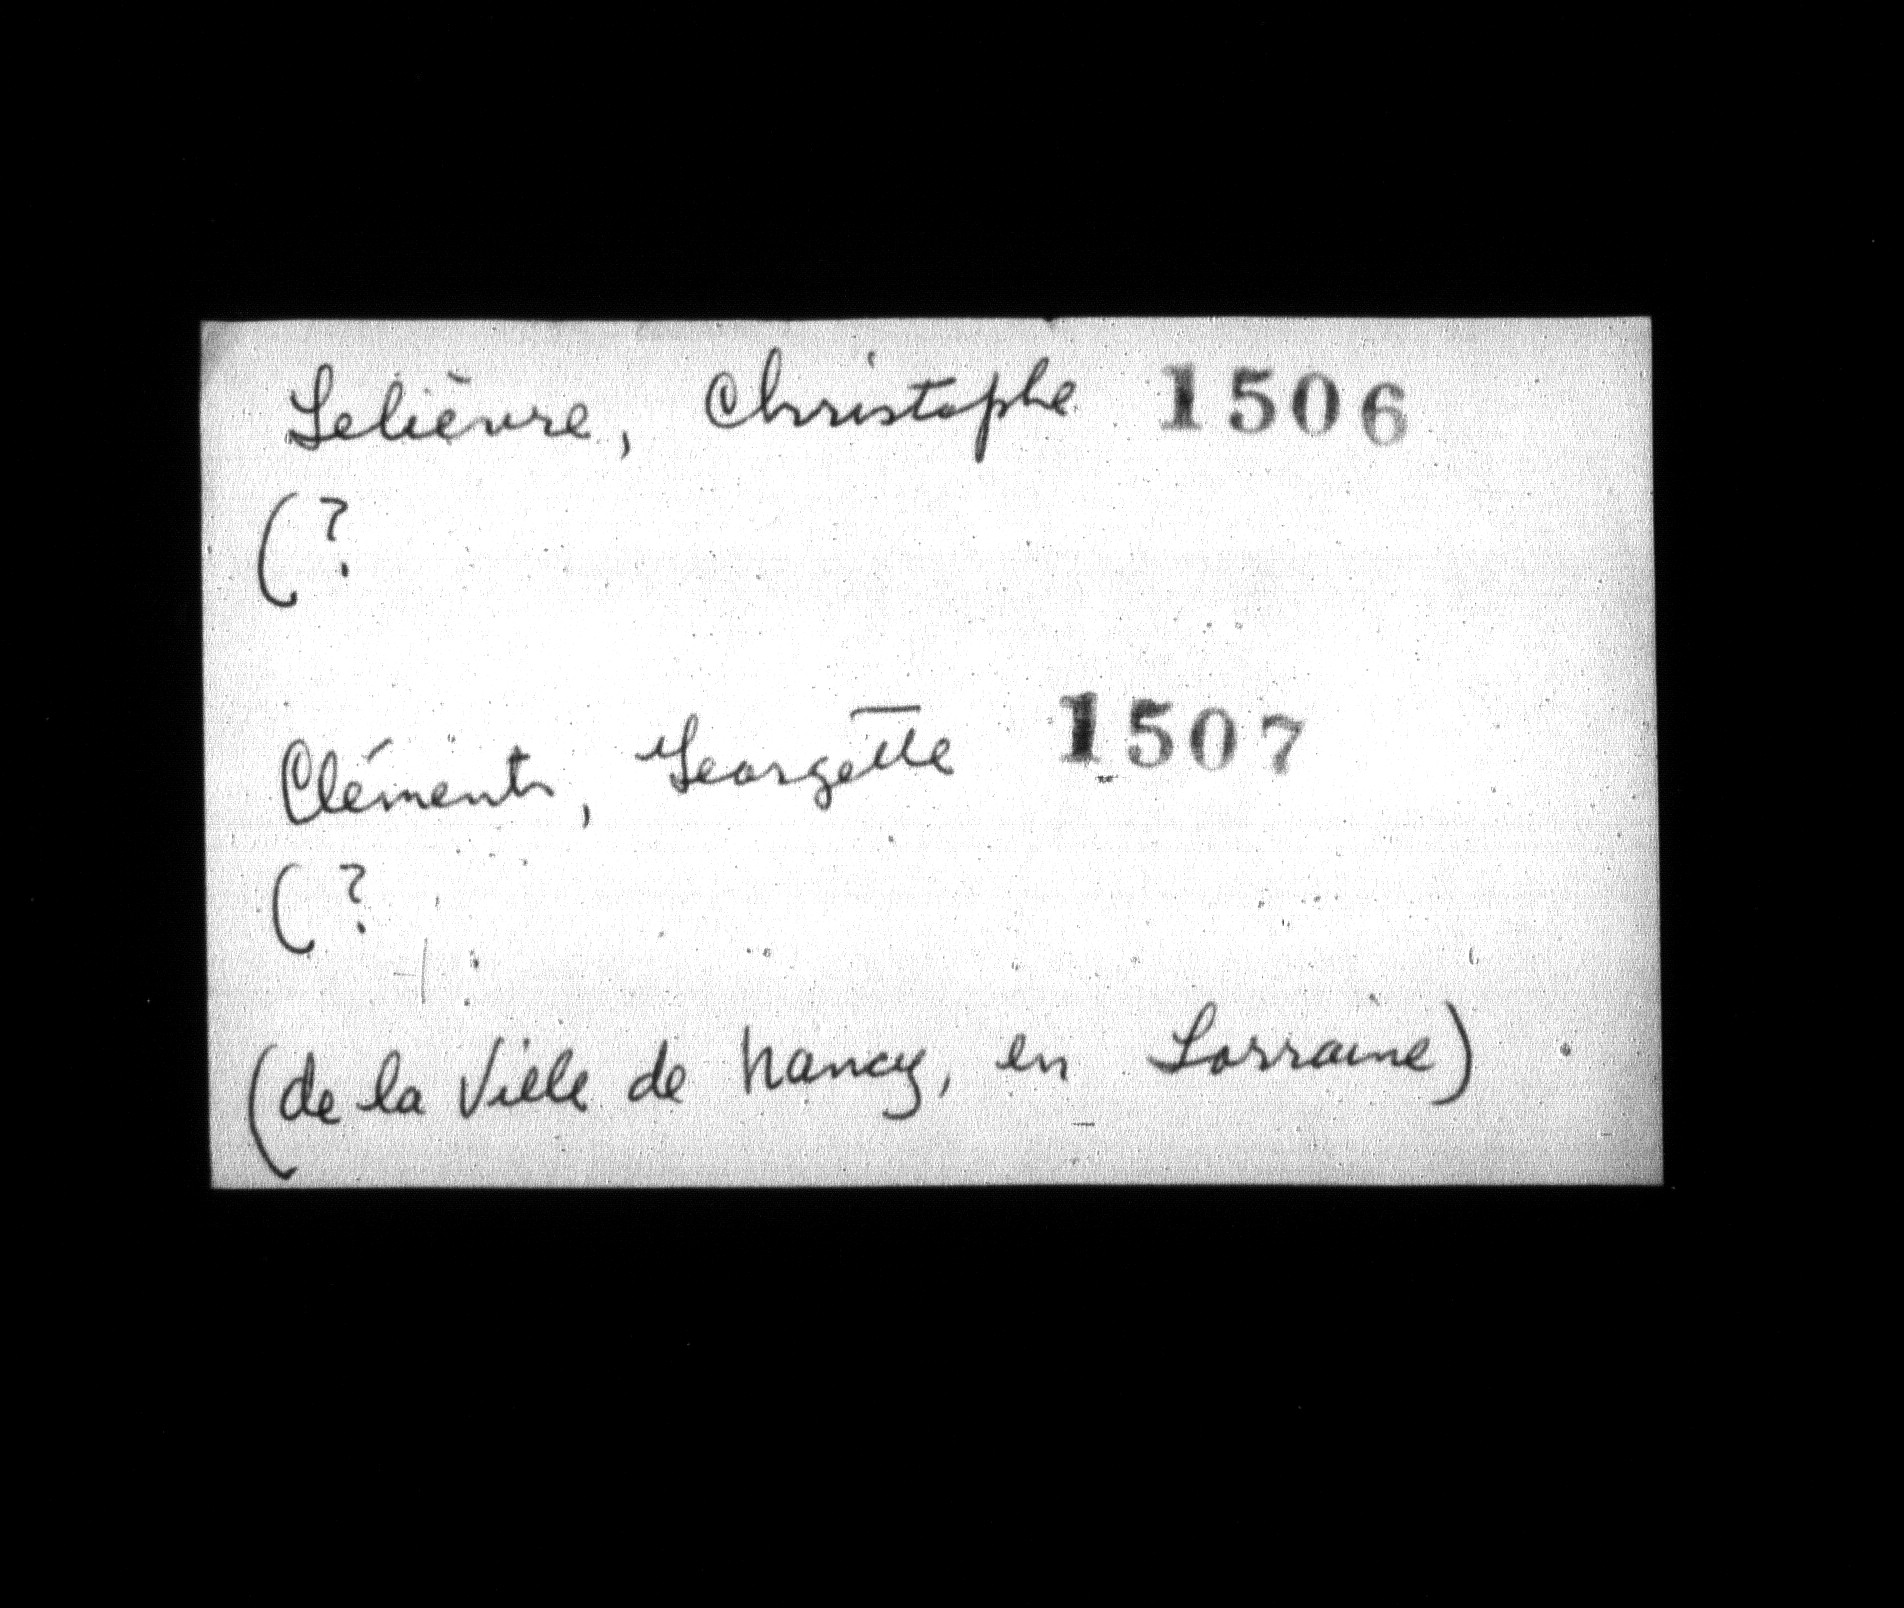 Lelièvre, Christophe 1506
( ?
Clément, Georgette 1507
( ?
(de la Ville de Nancy, en Lorraine)